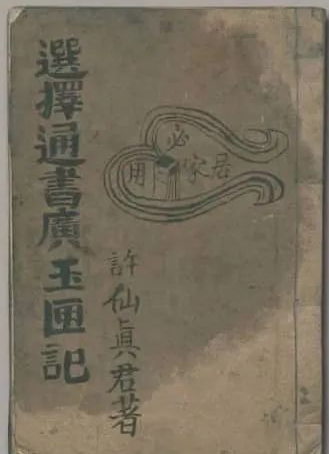 選擇通書廣玉匣記
居家必用
許仙真君著